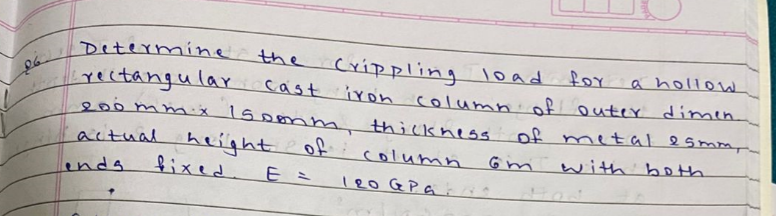 Q6. Determine the crippling load for a hollow
rectangular cast iron column of outer dimen
200 mm x 150mm, thickness of metal 25mm,
actual height of column 6m with both
ends fixed. E = 120 GPa.